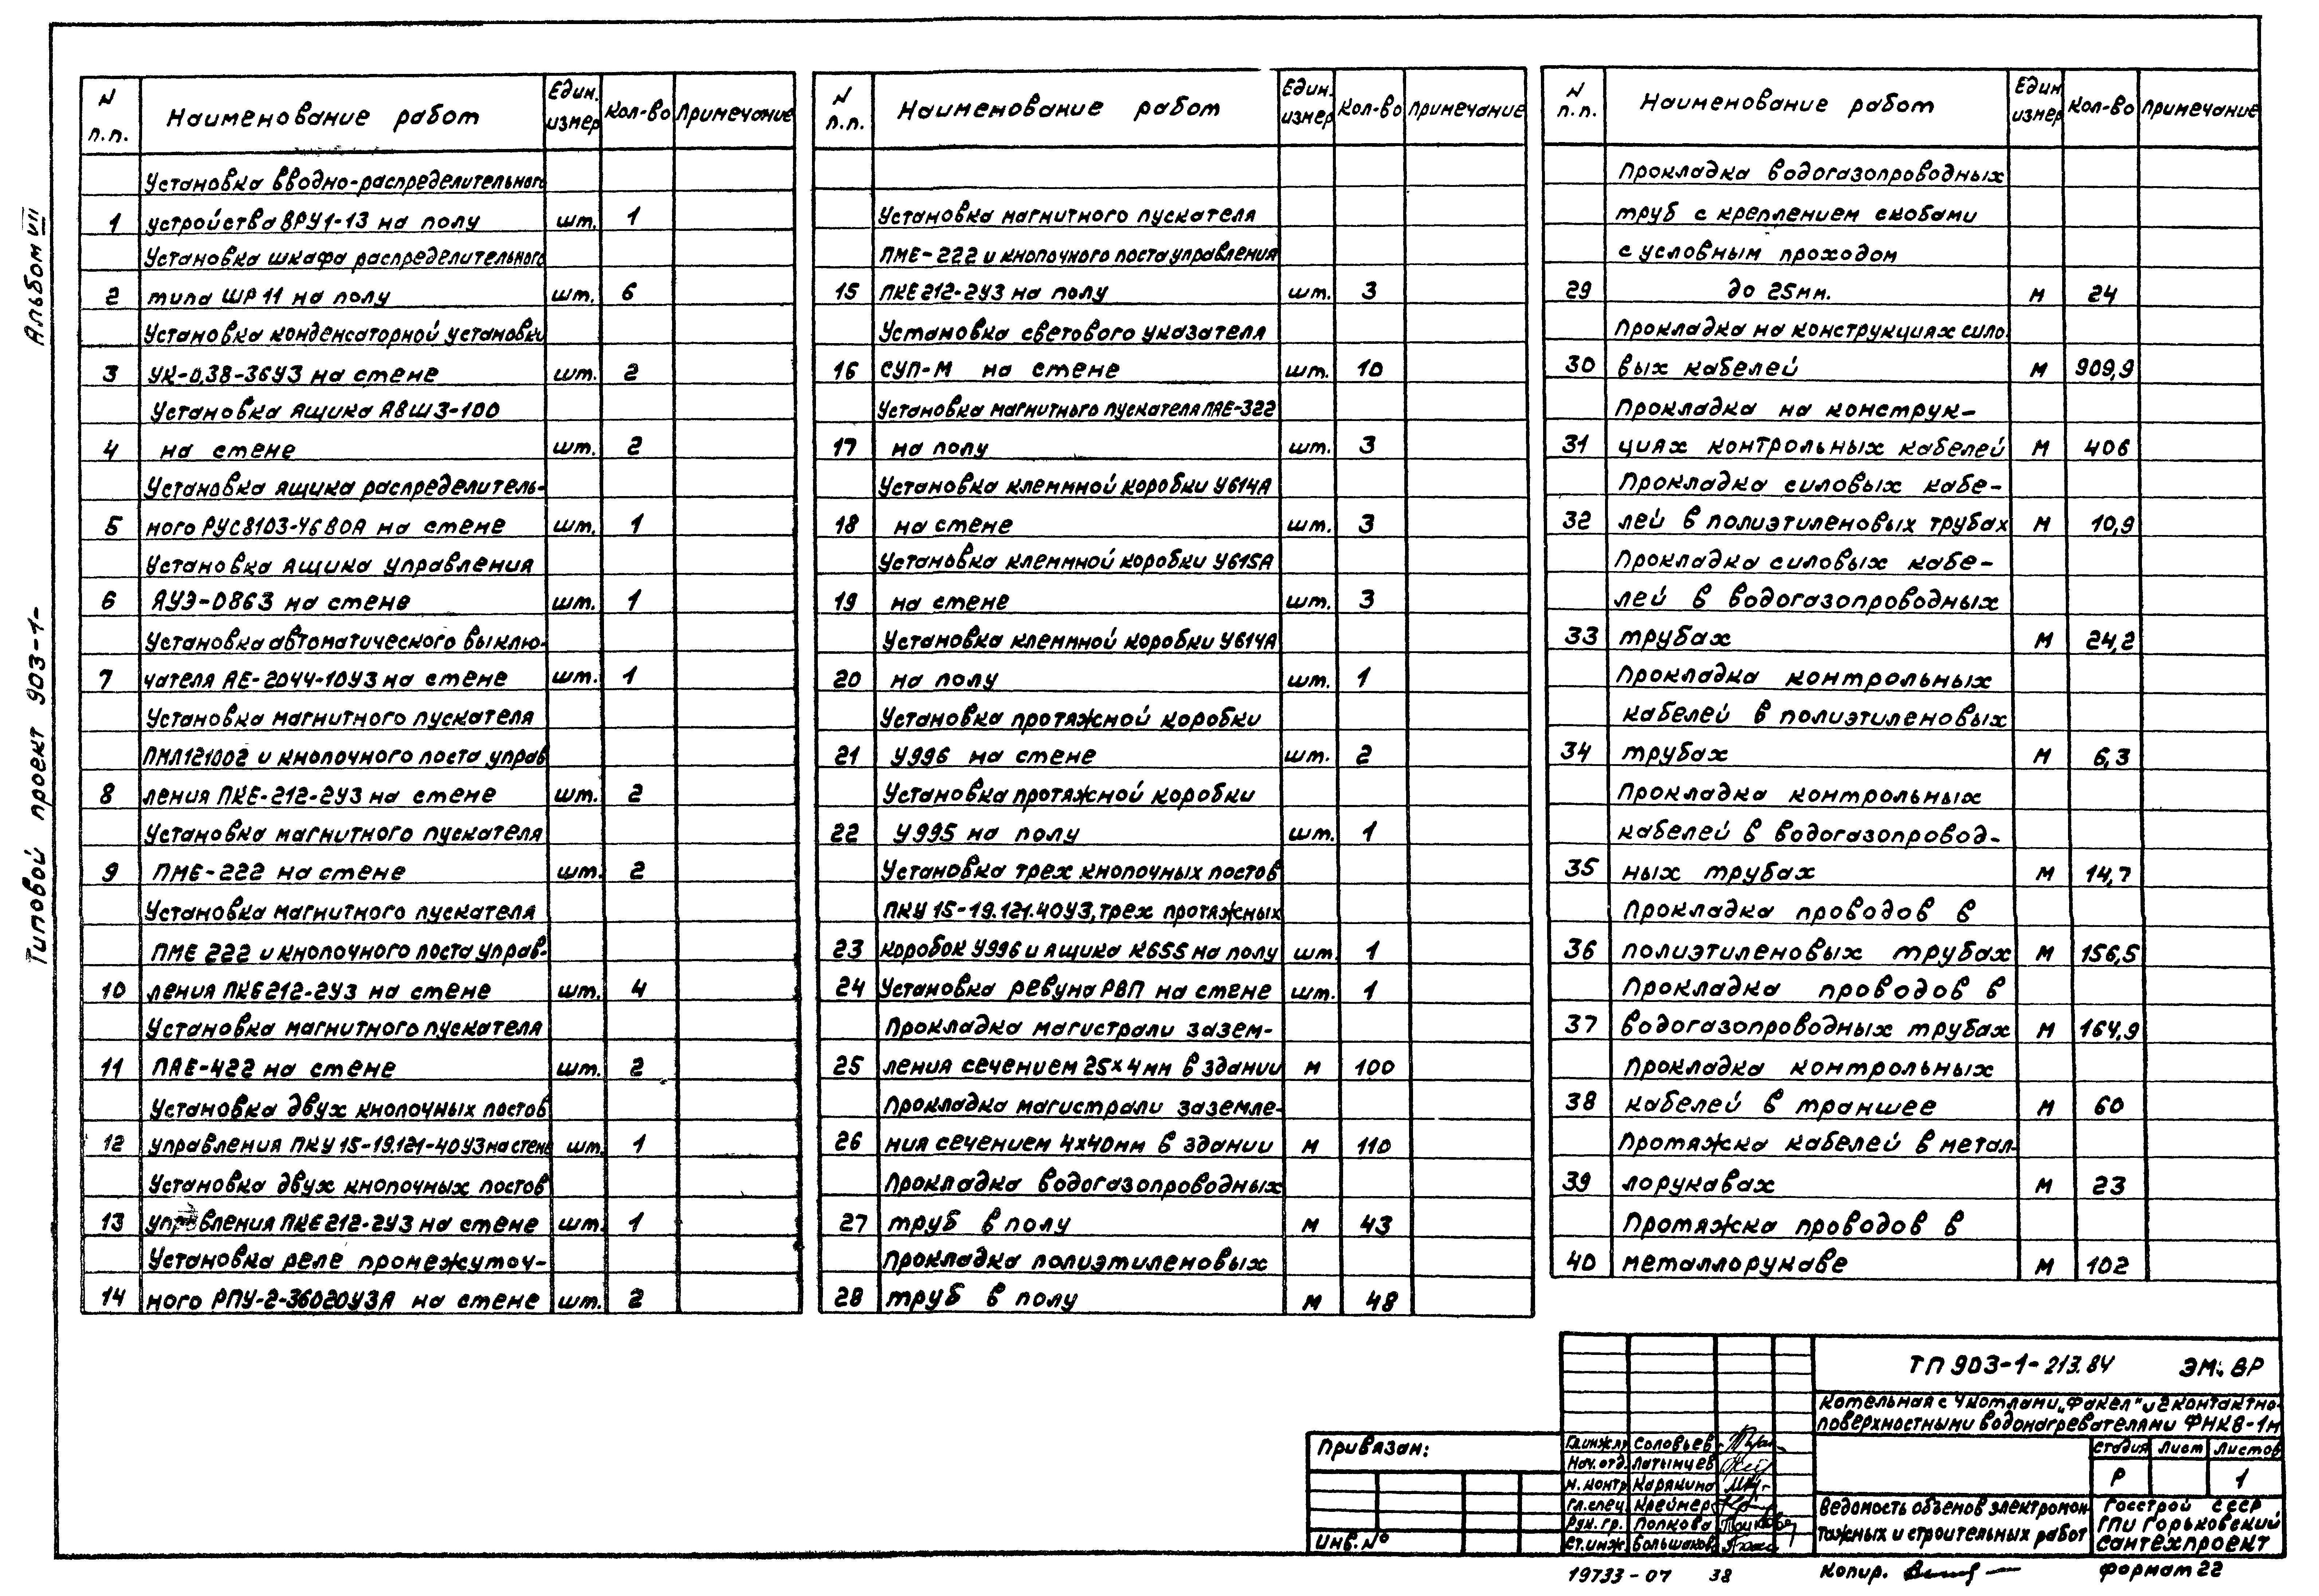 Альбом VII
Типовой проект 903-1-
N п.п. Наименование работ Един. измер Кол-во Примечание
Установка вводно-распределительного
1 устройства ВРУ1-13 на полу шт. 1
Установка шкафа распределительного
2 типа ШР11 на полу шт. 6
Установка конденсаторной установки
3 УК-0,38-36У3 на стене шт. 2
Установка ящика ЯВШ3-100
4 на стене шт. 2
Установка ящика распределитель-
5 ного РУС8103-4680А на стене шт. 1
Установка ящика управления
6 ЯУЭ-0863 на стене шт. 1
Установка автоматического выклю-
7 чателя АЕ-2044-10У3 на стене шт. 1
Установка магнитного пускателя
ПМЛ121002 и кнопочного поста управ
8 ления ПКЕ-212-2У3 на стене шт. 2
Установка магнитного пускателя
9 ПМЕ-222 на стене шт. 2
Установка магнитного пускателя
ПМЕ 222 и кнопочного поста управ-
10 ления ПКЕ212-2У3 на стене шт. 4
Установка магнитного пускателя
11 ПАЕ-422 на стене шт. 2
Установка двух кнопочных постов
12 управления ПКУ15-19.121-40У3 на стене шт. 1
Установка двух кнопочных постов
13 управления ПКЕ212-2У3 на стене шт. 1
Установка реле промежуточ-
14 ного РПУ-2-36020У3А на стене шт. 2
N п.п. Наименование работ Един. измер Кол-во Примечание
Установка магнитного пускателя
ПМЕ-222 и кнопочного поста управления
15 ПКЕ212-2У3 на полу шт. 3
Установка светового указателя
16 СУП-М на стене шт. 10
Установка магнитного пускателя ПАЕ-322
17 на полу шт. 3
Установка клеммной коробки У614А
18 на стене шт. 3
Установка клеммной коробки У615А
19 на стене шт. 3
Установка клеммной коробки У614А
20 на полу шт. 1
Установка протяжной коробки
21 У996 на стене шт. 2
Установка протяжной коробки
22 У995 на полу шт. 1
Установка трех кнопочных постов
ПКУ15-19.121.40У3, трех протяжных
23 коробок У996 и ящика К655 на полу шт. 1
24 Установка ревуна РВП на стене шт. 1
Прокладка магистрали зазем-
25 ления сечением 25х4мм в здании м 100
Прокладка магистрали заземле-
26 ния сечением 4х40мм в здании м 110
Прокладка водогазопроводных
27 труб в полу м 43
Прокладка полиэтиленовых
28 труб в полу м 48
N п.п. Наименование работ Един измер Кол-во Примечание
Прокладка водогазопроводных
труб с креплением скобами
с условным проходом
29 до 25мм. м 24
Прокладка на конструкциях сило-
30 вых кабелей м 909,9
Прокладка на конструк-
31 циях контрольных кабелей м 406
Прокладка силовых кабе-
32 лей в полиэтиленовых трубах м 10,9
Прокладка силовых кабе-
лей в водогазопроводных
33 трубах м 24,2
Прокладка контрольных
кабелей в полиэтиленовых
34 трубах м 6,3
Прокладка контрольных
кабелей в водогазопровод-
35 ных трубах м 14,7
Прокладка проводов в
36 полиэтиленовых трубах м 156,5
Прокладка проводов в
37 водогазопроводных трубах м 164,9
Прокладка контрольных
38 кабелей в траншее м 60
Протяжка кабелей в метал-
39 лорукавах м 23
Протяжка проводов в
40 металлорукаве м 102
ТП 903-1-213.84 ЭМ.ВР
Котельная с 4 котлами „Факел" и 2 контактно-
поверхностными водонагревателями ФНКВ-1м
Привязан:
Инв. №
Гл.инж.пр Соловьев
Нач.отд. Латынцев
Н.контр Карякина
Гл.спец. Креймер
Рук.гр. Попкова
Ст.инж. Большаков
Стадия Лист Листов
Р 1
Ведомость объемов электромон-
тажных и строительных работ
Госстрой СССР
ГПИ Горьковский
Сантехпроект
19733-07 38
Копир.
Формат 22